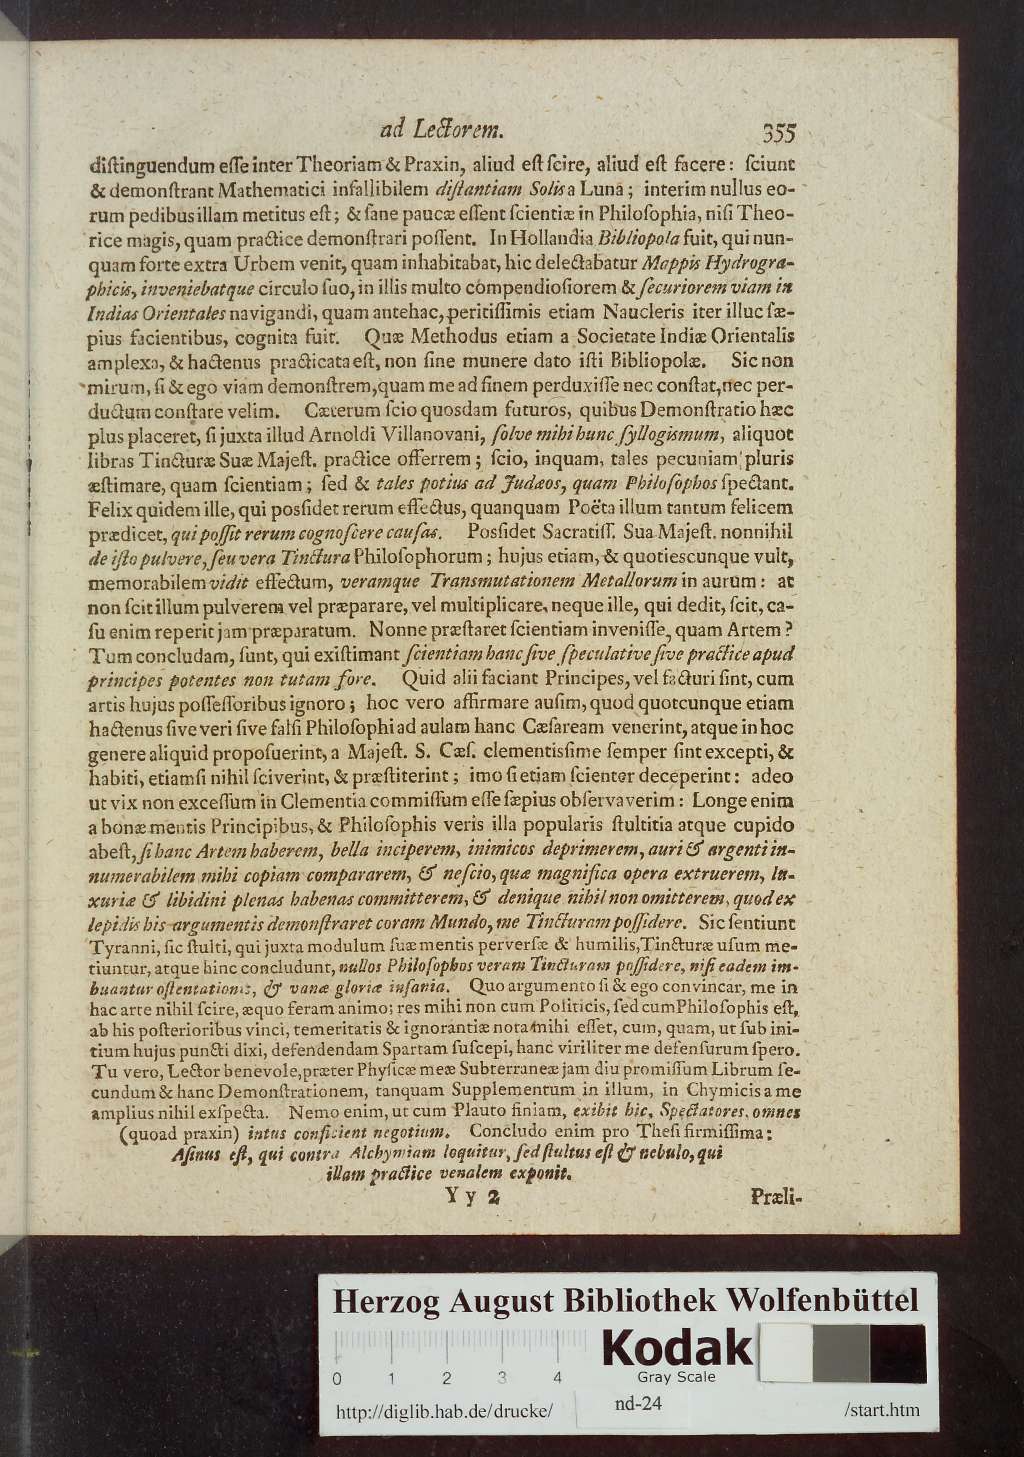 ad Lectorem. 355
diſtinguendum eſſe inter Theoriam & Praxin, aliud eſt ſcire, aliud eſt facere: ſciunt
& demonſtrant Mathematici infallibilem diſtantiam Solis a Luna; interim nullus eo-
rum pedibus illam metitus eſt; & ſane paucæ eſſent ſcientiæ in Philoſophia, niſi Theo-
rice magis, quam practice demonſtrari poſſent. In Hollandia Bibliopola fuit, qui nun-
quam forte extra Urbem venit, quam inhabitabat, hic delectabatur Mappis Hydrogra-
phicis, inveniebatque circulo ſuo, in illis multo compendioſiorem & ſecuriorem viam in
Indias Orientales navigandi, quam antehac, peritiſſimis etiam Naucleris iter illuc ſæ-
pius facientibus, cognita fuit. Quæ Methodus etiam a Societate Indiæ Orientalis
amplexa, & hactenus practicata eſt, non ſine munere dato iſti Bibliopolæ. Sic non
mirum, ſi & ego viam demonſtrem, quam me ad finem perduxiſſe nec conſtat, nec per-
ductum conſtare velim. Cæterum ſcio quosdam futuros, quibus Demonſtratio hæc
plus placeret, ſi juxta illud Arnoldi Villanovani, ſolve mihi hunc ſyllogismum, aliquot
libras Tincturæ Suæ Majeſt. practice offerrem; ſcio, inquam, tales pecuniam pluris
æſtimare, quam ſcientiam; ſed & tales potius ad Judæos, quam Philoſophos ſpectant.
Felix quidem ille, qui poſſidet rerum effectus, quanquam Poëta illum tantum felicem
prædicet, qui poſſit rerum cognoſcere cauſas. Poſſidet Sacratiſſ. Sua Majeſt. nonnihil
de iſto pulvere, ſeu vera Tinctura Philoſophorum; hujus etiam, & quotiescunque vult,
memorabilem vidit effectum, veramque Transmutationem Metallorum in aurum: at
non ſcit illum pulverem vel præparare, vel multiplicare, neque ille, qui dedit, ſcit, ca-
ſu enim reperit jam præparatum. Nonne præſtaret ſcientiam inveniſſe, quam Artem?
Tum concludam, ſunt, qui exiſtimant ſcientiam hanc ſive ſpeculative ſive practice apud
principes potentes non tutam fore. Quid alii faciant Principes, vel facturi ſint, cum
artis hujus poſſeſſoribus ignoro; hoc vero affirmare auſim, quod quotcunque etiam
hactenus ſive veri ſive falſi Philoſophi ad aulam hanc Cæſaream venerint, atque in hoc
genere aliquid propoſuerint, a Majeſt. S. Cæſ. clementiſſime ſemper ſint excepti, &
habiti, etiamſi nihil ſciverint, & præſtiterint; imo ſi etiam ſcienter deceperint: adeo
ut vix non exceſſum in Clementia commiſſum eſſe ſæpius obſervaverim: Longe enim
a bonæ mentis Principibus, & Philoſophis veris illa popularis ſtultitia atque cupido
abeſt, ſi hanc Artem haberem, bella inciperem, inimicos deprimerem, auri & argenti in-
numerabilem mihi copiam compararem, & neſcio, quæ magnifica opera extruerem, lu-
xuriæ & libidini plenas habenas committerem, & denique nihil non omitterem, quod ex
lepidis his argumentis demonſtraret coram Mundo, me Tincturam poſſidere. Sic ſentiunt
Tyranni, ſic ſtulti, qui juxta modulum ſuæ mentis perverſæ & humilis, Tincturæ uſum me-
tiuntur, atque hinc concludunt, nullos Philoſophos veram Tincturam poſſidere, niſi eadem im-
buantur oſtentationis, & vanæ gloriæ inſania. Quo argumento ſi & ego convincar, me in
hac arte nihil ſcire, æquo feram animo; res mihi non cum Politicis, ſed cum Philoſophis eſt,
ab his poſterioribus vinci, temeritatis & ignorantiæ nota mihi eſſet, cum, quam, ut ſub ini-
tium hujus puncti dixi, defendendam Spartam ſuſcepi, hanc viriliter me defenſurum ſpero.
Tu vero, Lector benevole, præter Phyſicæ meæ Subterraneæ jam diu promiſſum Librum ſe-
cundum & hanc Demonſtrationem, tanquam Supplementum in illum, in Chymicis a me
amplius nihil exſpecta. Nemo enim, ut cum Plauto finiam, exibit hic, Spectatores, omnes
(quoad praxin) intus conficient negotium. Concludo enim pro Theſi firmiſſima:
Aſinus eſt, qui contra Alchymiam loquitur, ſed ſtultus eſt & nebulo, qui
illam practice venalem exponit.
Y y 2 Præli-
Herzog August Bibliothek Wolfenbüttel
Kodak
Gray Scale
0 1 2 3 4
http://diglib.hab.de/drucke/ nd-24 /start.htm